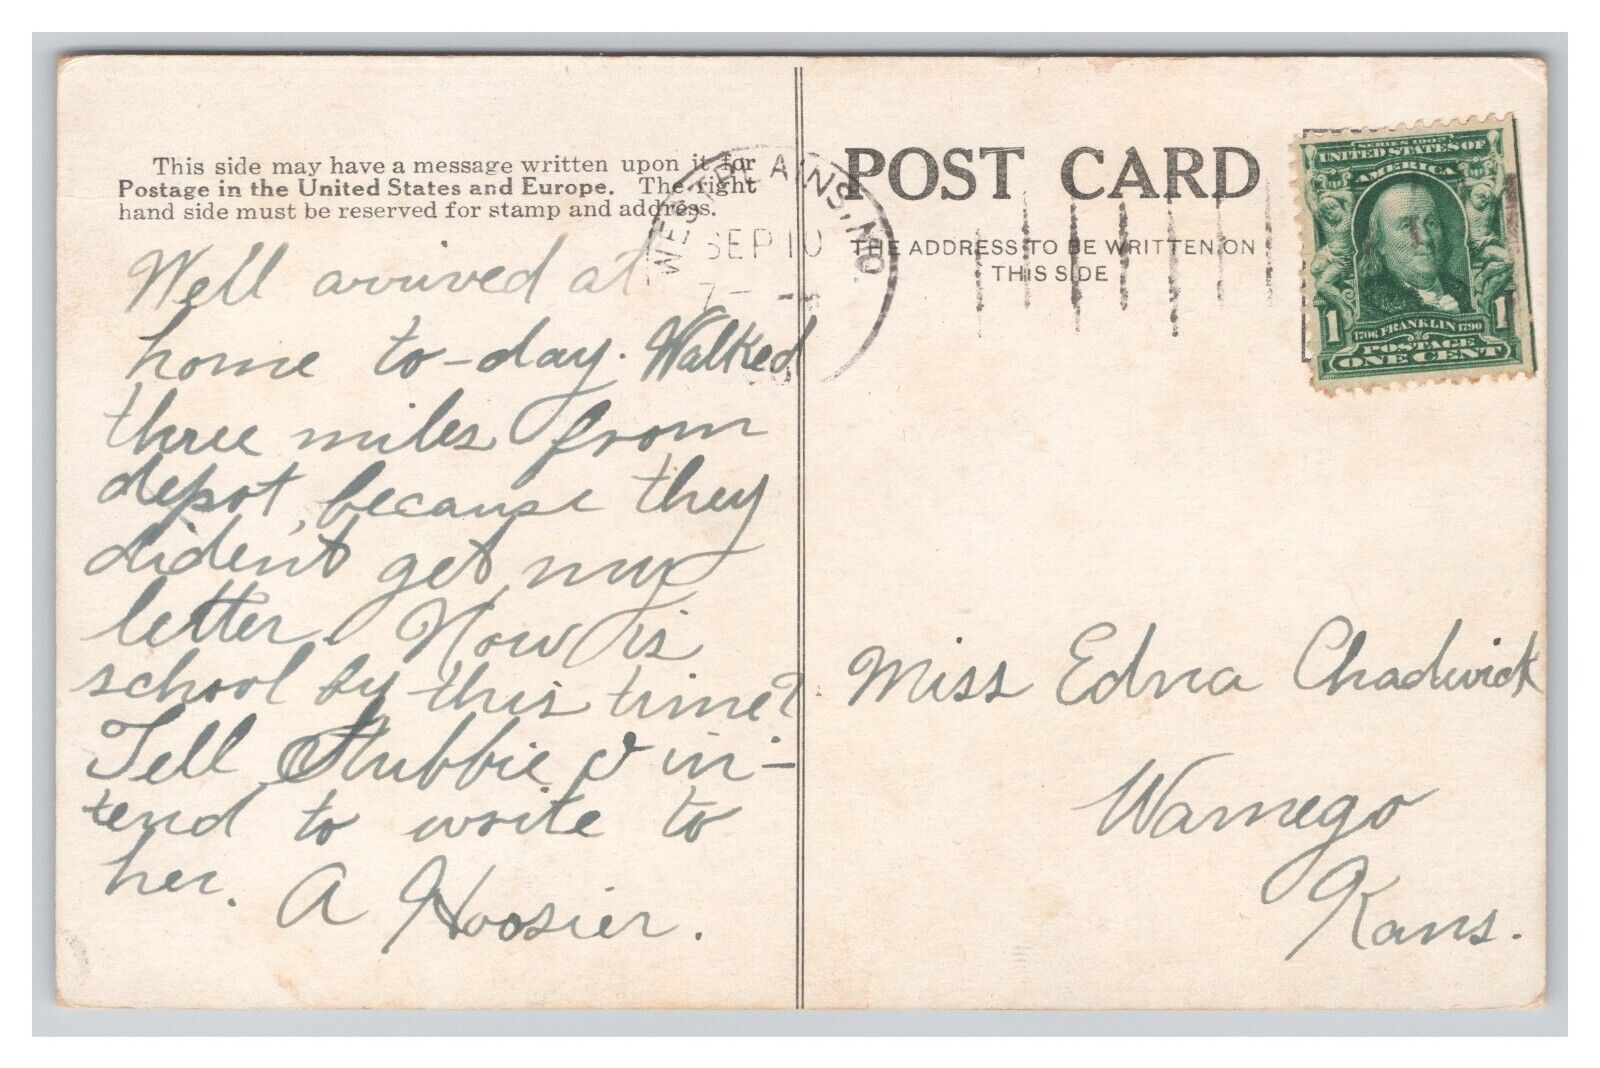 This side may have a message written upon it for
Postage in the United States and Europe. The right
hand side must be reserved for stamp and address.
Well arrived at
home to-day. Walked
three miles from
depot, because they
diden't get my
letter. How is
school by this time?
Tell Stubbie I in-
tend to write to
her. A Hoosier.
WEST PLAINS, MO.
SEP 10
7-
POST CARD
THE ADDRESS TO BE WRITTEN ON
THIS SIDE
SERIES 1902
UNITED STATES OF
AMERICA
1 1
1706 FRANKLIN 1790
POSTAGE
ONE CENT
Miss Edna Chadwick
Wamego
Kans.